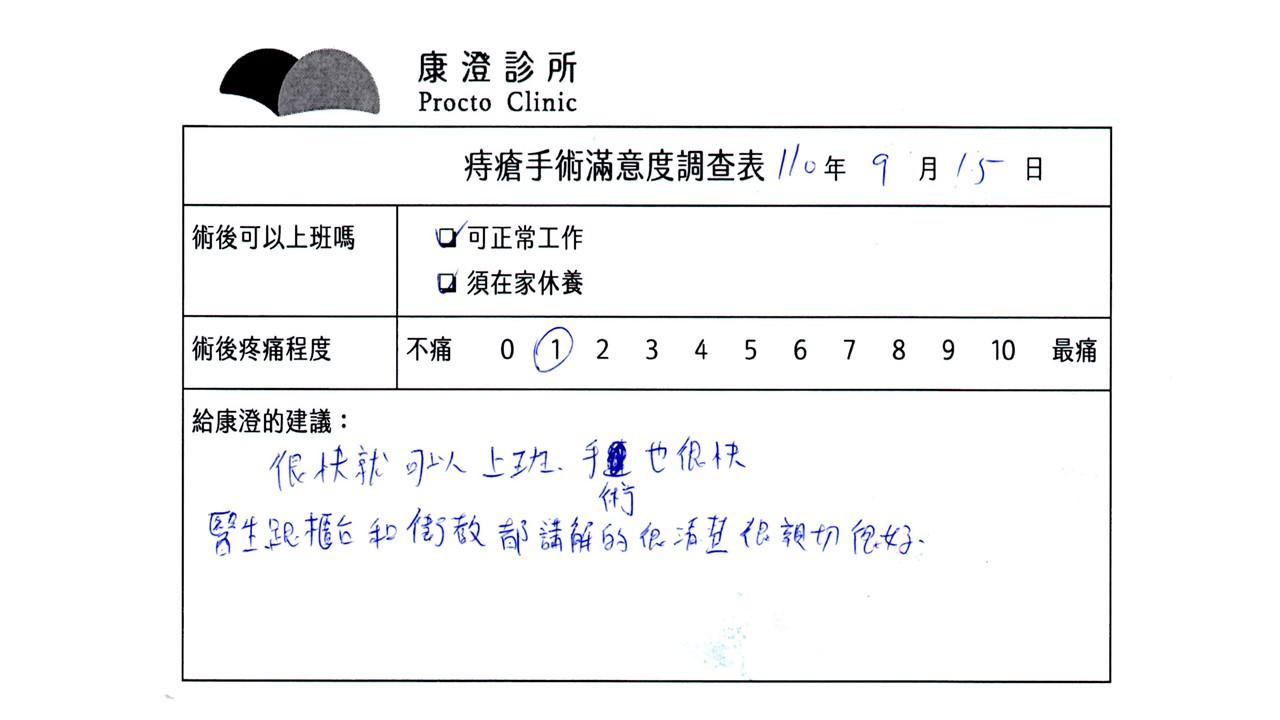 康澄診所
Procto Clinic
痔瘡手術滿意度調查表 110年 9月 15日
術後可以上班嗎
☑ 可正常工作
☑ 須在家休養
術後疼痛程度 不痛 0 1 2 3 4 5 6 7 8 9 10 最痛
給康澄的建議：
很快就可以上班、手術也很快
醫生跟櫃台和衛教都講解的很清楚很親切很好.